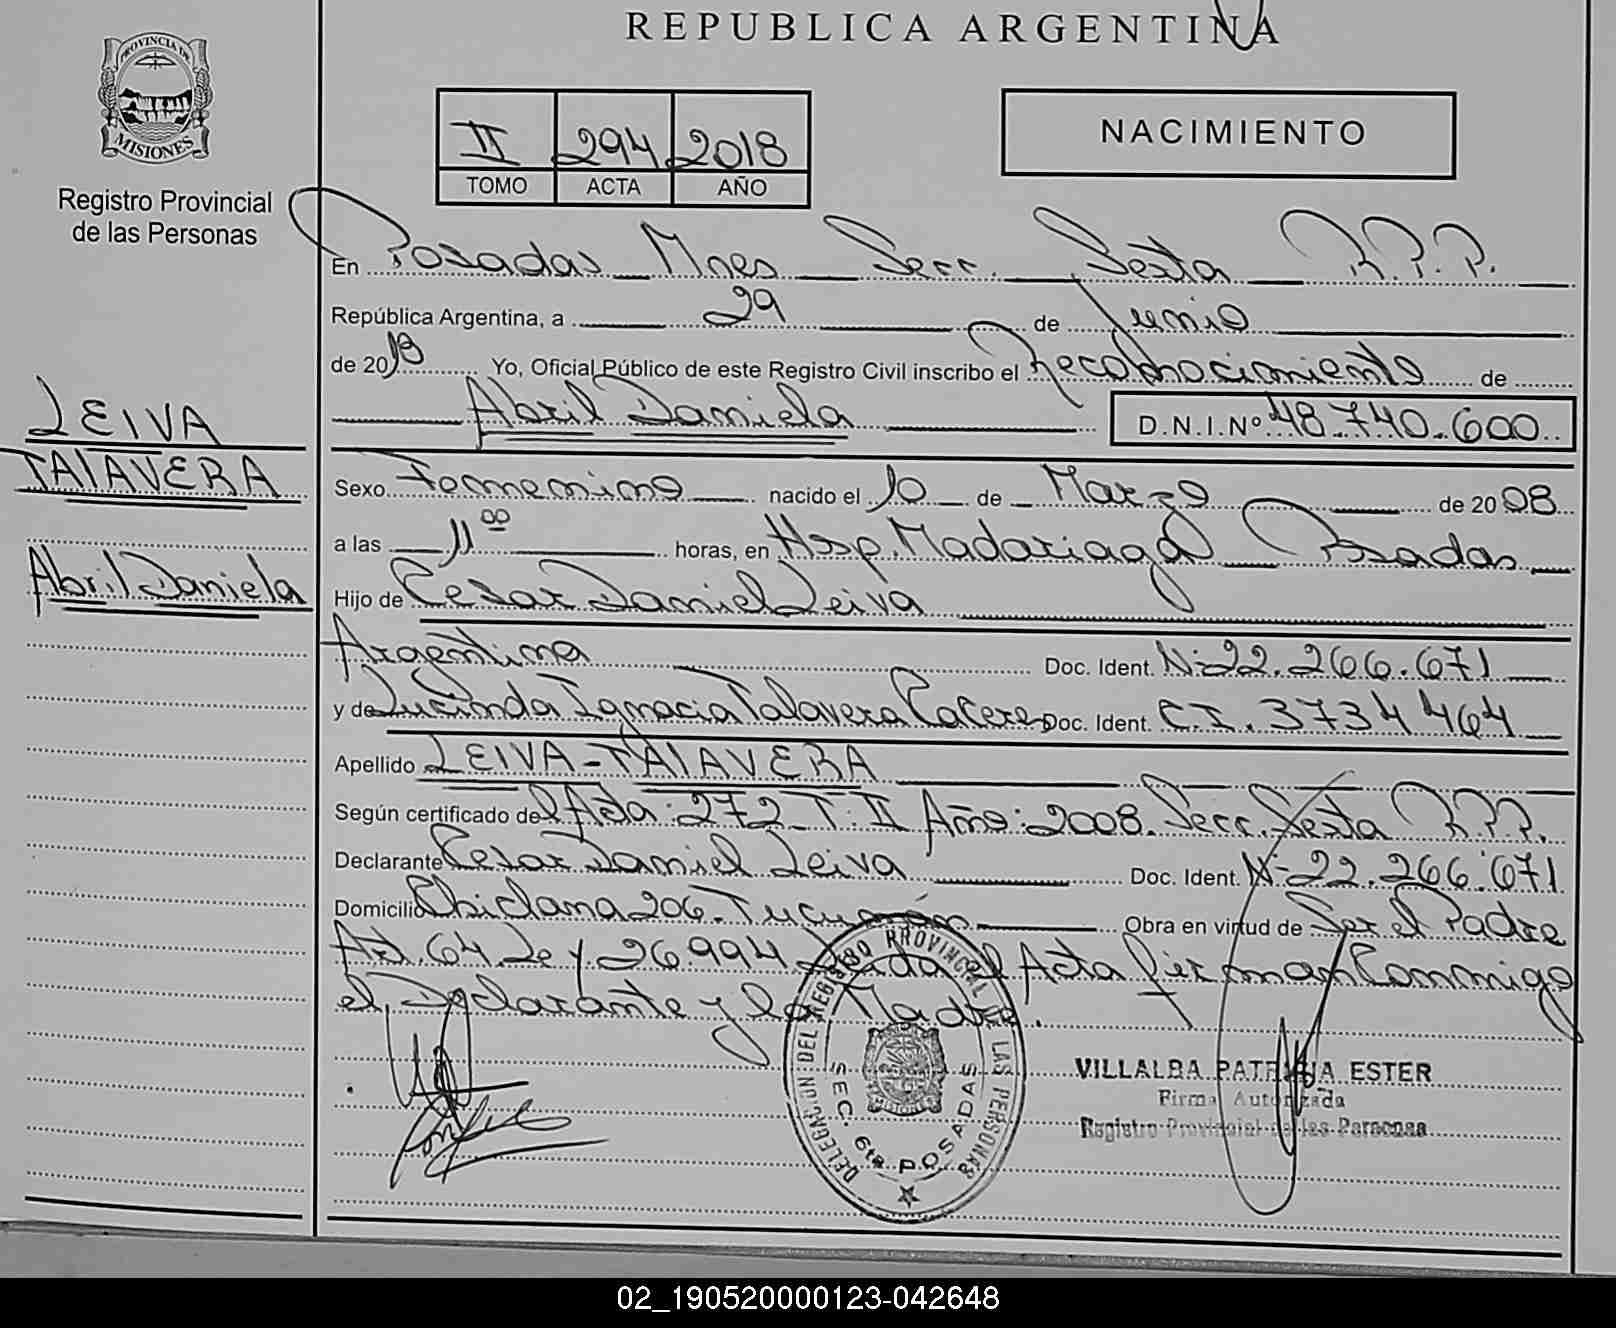 REPUBLICA ARGENTINA
PROVINCIA DE MISIONES
Registro Provincial
de las Personas
II 294 2018
TOMO ACTA AÑO
NACIMIENTO
En Posadas Mnes Secc. Sexta R.P.P.
República Argentina, a 29 de Junio
de 2018 Yo, Oficial Público de este Registro Civil inscribo el Reconocimiento de
Abril Daniela D.N.I.Nº 48.740.600
LEIVA
TALAVERA
Abril Daniela
Sexo Femenino nacido el 10 de Marzo de 2008
a las 11⁰⁰ horas, en Hosp. Madariaga Posadas
Hijo de Cesar Daniel Leiva
Argentina Doc. Ident. Nº 22.266.671
y de Lucinda Ignacia Talavera Caceres Doc. Ident. C.I. 3734464
Apellido LEIVA-TALAVERA
Según certificado del Acta: 272 T: II Año: 2008. Secc. Sexta R.P.P.
Declarante Cesar Daniel Leiva Doc. Ident. Nº 22.266.671
Domicilio Chiclana 206. Tucumán Obra en virtud de Ser el Padre
Art. 64 Ley 26994 Leída el Acta firman Conmigo
el Declarante y la Madre.
DELEGACION DEL REGISTRO PROVINCIAL DE LAS PERSONAS
SEC. 6ta POSADAS
VILLALBA PATRICIA ESTER
Firma Autorizada
Registro Provincial de las Personas
02_190520000123-042648